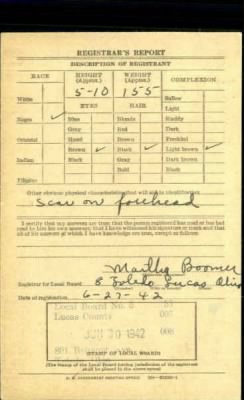 REGISTRAR'S REPORT
DESCRIPTION OF REGISTRANT
RACE HEIGHT (Approx.) WEIGHT (Approx.) COMPLEXION
5-10 155
White Sallow
EYES HAIR Light
Negro ✓ Blue Blonde Ruddy
Gray Red Dark
Oriental Hazel Brown Freckled
Brown ✓ Black ✓ Light brown ✓
Indian Black Gray Dark brown
Bald Black
Filipino
Other obvious physical characteristics that will aid in identification
Scar on forehead
I certify that my answers are true; that the person registered has read or has had
read to him his own answers; that I have witnessed his signature or mark and that
all of his answers of which I have knowledge are true, except as follows:
Boomer
Registrar for Local Board 8 Toledo Lucas Ohio
Date of registration 6-27-42
Local Board No. 8
Lucas County 095
1942 008
STAMP OF LOCAL BOARD
(The Stamp of the Local Board having jurisdiction of the registrant
shall be placed in the above space.)
U. S. GOVERNMENT PRINTING OFFICE